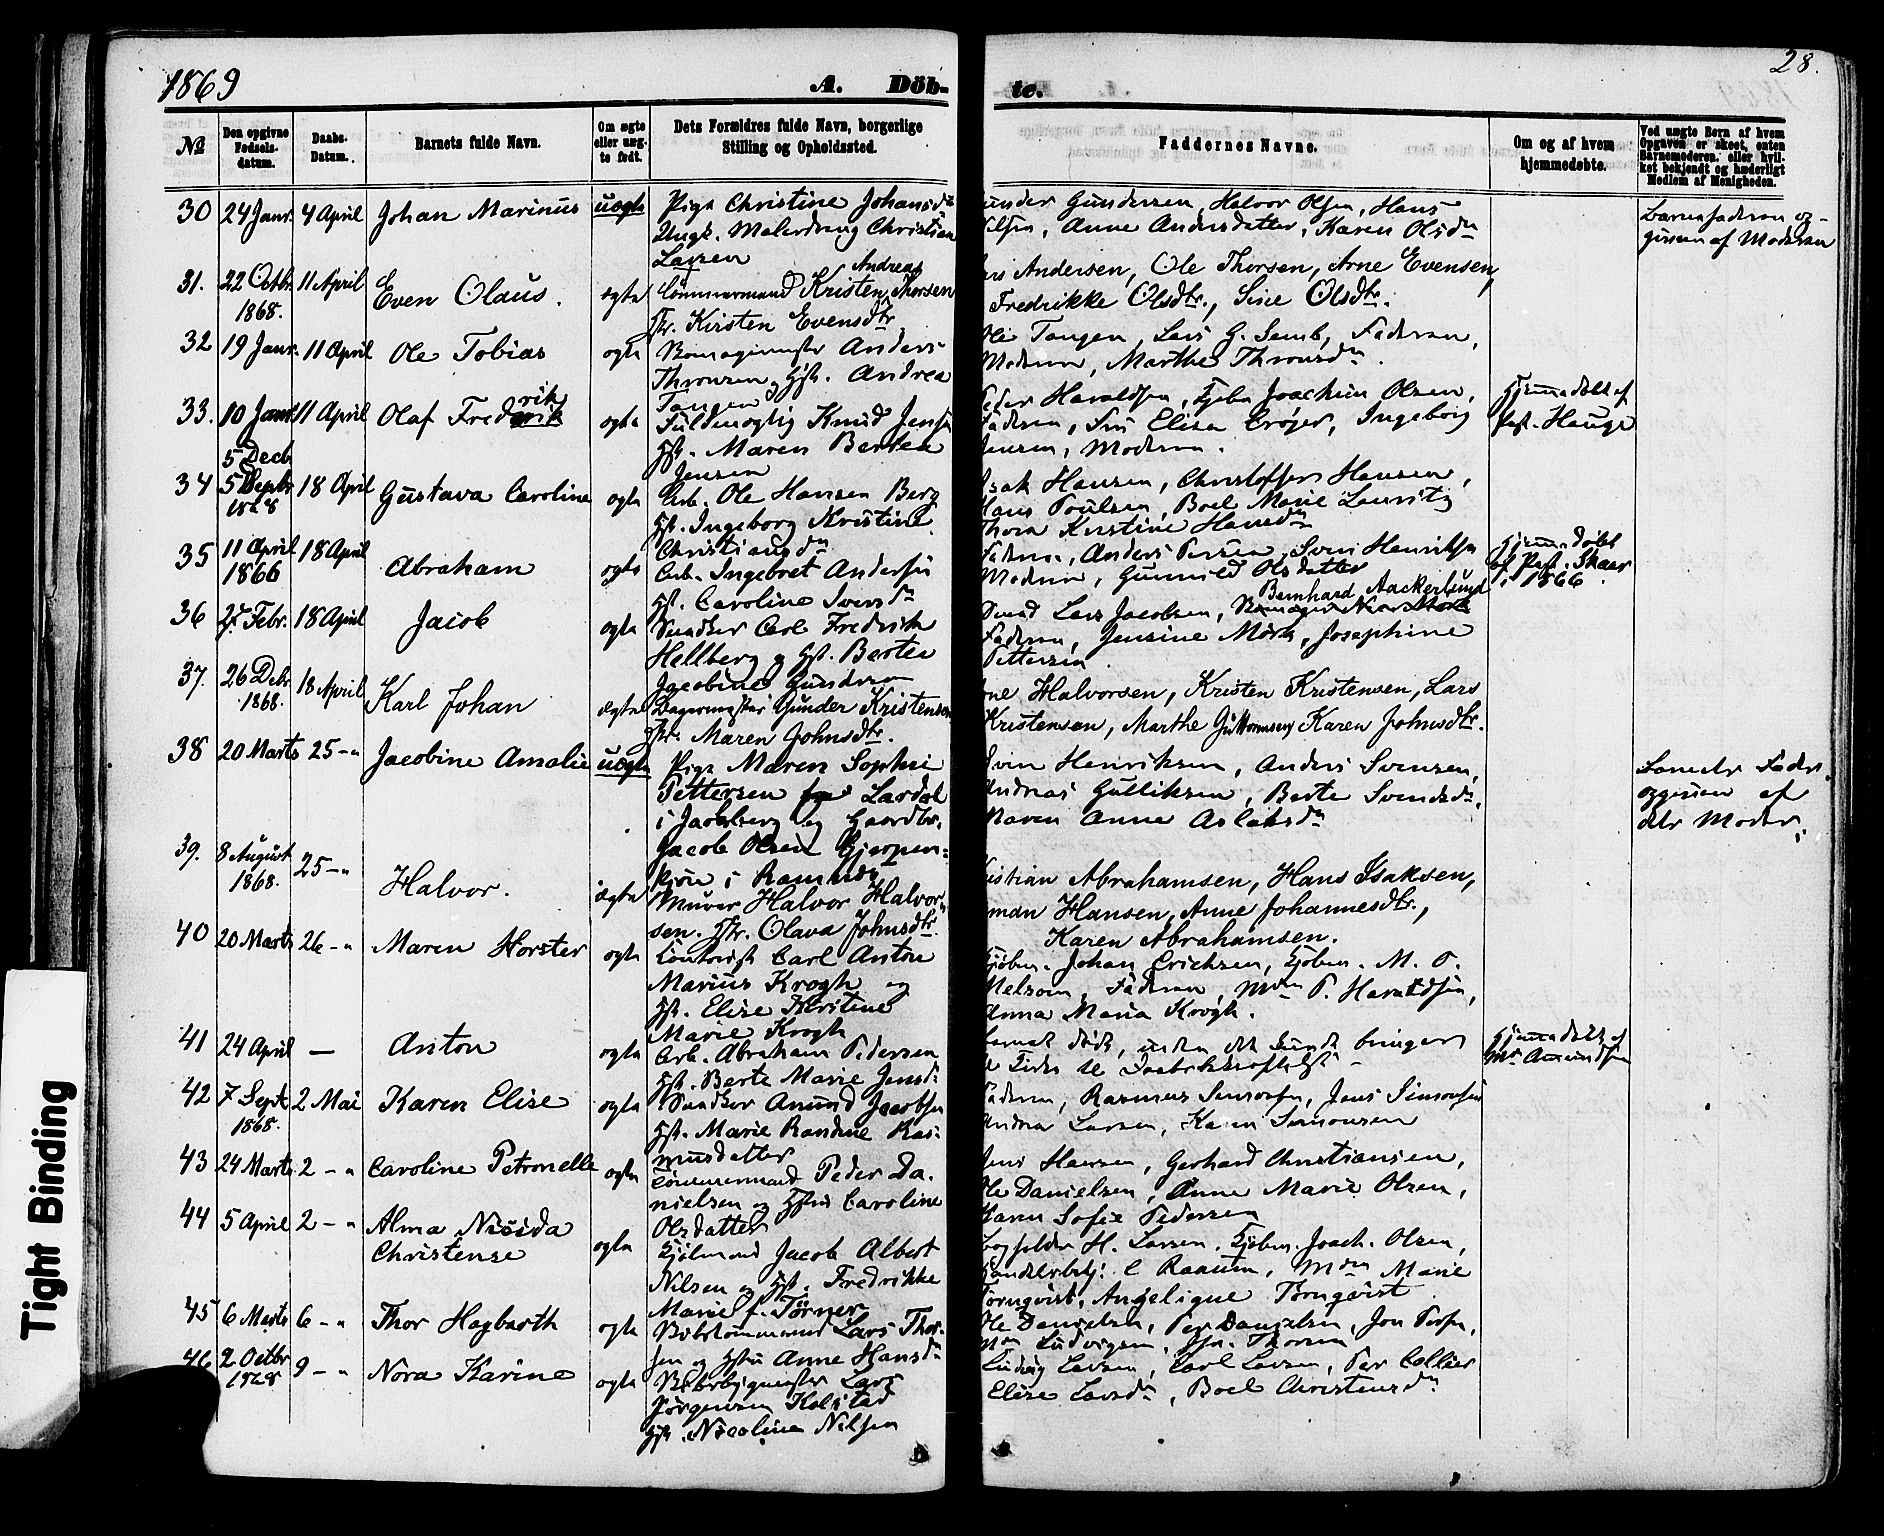 1869
A. Döb-
te.
28.
№
Den opgivne Fødsels-datum.
Daabs-Datum.
Barnets fulde Navn.
Om ægte eller uæg-te født.
Dets Forældres fulde Navn, borgerlige Stilling og Opholdssted.
Faddernes Navne.
Om og af hvem hjemmedøbte.
Ved uægte Børn af hvem Opgaven er skeet, enten Barnemoderen, eller hvil-ket bekjendt og hæderligt Medlem af Menigheden.
30 24 Janr. 4 April Johan Marinus uægte Pige Christine Johansdr
Ungk. Christian
Larsen
Gundersen, Halvor Olsen, Hans
Anne Andersdatter, Karen Olsdr
Barnefaderen op-
given af Moderen
31. 22 Octbr. 1868. 11 April Even Olaus. ægte Tømmermand Kristen Andreas Thorsen
Hstr. Kirsten Evensdtr.
Andersen, Ole Thorsen, Arne Evensen,
Fredrikke Olsdtr., Sine Olsdtr.
32 19 Janr. 11 April Ole Tobias ægte Anders
Thronsen og Hst. Andrea
Tangen
Ole Tangen, Lars G. Semb, Faderen,
Moderen, Marthe Thronsdr.
33. 10 Janr. 11 April Olaf Fredrik ægte Fuldmægtig Knud Jensen
Hst. Maren Bertea
Jensen
Peder Haraldsen, Joachim Olsen,
Faderen, Elise Crøger, Ingeborg
Jensen, Moderen.
Hjemmedøbt af
Past. Hauge
34 5 Decb. 1868 18 April Gustava Caroline ægte Arb. Ole Hansen Berg
Hst. Ingeborg Kristine
Christiansdr
Isak Hansen, Christoffer Hansen,
Hans Poulsen, Boel Marie Lauritz
Thora Kristine Hansdr
35 11 April 1866 18 April Abraham ægte Arb. Ingebret Andersen
Hst. Caroline Iversdr
Faderen, Anders Svend Henriksen
Moderen, Gunnild Olsdatter
Hjemmedøbt
af Past. Skaar
i 1866.
36 27. Febr. 18 April Jacob ægte Snedker Carl Fredrik
Hellberg og Hst. Berte
Jacobine
Lars Jacobsen, Bernhard Aackerlund
Faderen, Jensine Mørk, Josephine
Pettersen
37. 26 Debr. 1868. 18 April Karl Johan ægte Bagermester Gunder Kristensen
Hstr. Maren Johnsdtr.
Halvorsen, Kristen Kristensen, Lars
Kristensen, Marthe Guttormsen, Karen Johnsdtr.
38 20 Marts 25 -" Jacobine Amalie uægte Pige Maren Sophie
Pettersen Lardal
i Jarlsberg og Gaardbr.
Jacob Olsen Gjerpen-
i Ramnæs
Svin Henriksen, Anders Svensen,
Andreas Gulliksen, Berte Svendsdr,
Maren Anne Aslaksdr
af
Moder
39. 8 August 1868. 25 -" Halvor. ægte Murer Halvor Halvor-
sen. Hstr. Olava Johnsdtr.
Kristian Abrahamsen, Hans Isaksen,
Hansen, Anne Johannesdtr.,
Karen Abrahamsen.
40 20 Marts 26 -" Maren Horster ægte Contorist Carl Anton
Marius Krogh og
Hst. Elise Kirstine
Marie Krogh
Kjøbm. Johan Erichsen, Kjøbm. M. O.
Melsom, Faderen, Mdm P. Haraldsen,
Anna Maria Krogh.
41 24 April — Anton ægte Arb. Abraham Pedersen
Hst. Berte Marie Jensdr
Barnet døde, inden det kunde bringes
til Kirke til Daabsbekræftelse
Hjemmedøbt af
Mdm Amundsen
42 7 Sept. 1868. 2 Mai Karen Elise ægte Snedker Anund Jacobsen
Hst. Marie Randine Ras-
musdatter
Faderen, Rasmus Simonsen, Jens Simonsen
Andrea Larsen, Karen Simonsen
43 24 Marts 2 -" Caroline Petronelle ægte Tømmermand Peder Da-
nielsen og Hstru Caroline
Olsdatter
Jens Hansen, Gerhard Christiansen,
Ole Danielsen, Anne Marie Olsen,
Karen Sofie Pedersen
44 5 April 2 -" Alma Nisida
Christense ægte Jacob Albert
Nilsen og Hst. Fredrikke
Marie f. Tørner
H. Larsen, Kjøbm. Joach. Olsen,
C Raanum, Mdm Marie
Tørnqvist, Angelique Tørnqvist
45 6 Marts 6 -" Thor Hagbarth ægte Lars Thor-
sen og Hstru Anne Hansdr
Ole Danielsen, Per Danielsen, Jon
Mdm Ludvigsen, Thorsen
46 2 Octbr 1868 9 -" Nora Karine ægte Lars
Jørgensen Kolstad
Hst. Nicoline Nilsen
Ludvig Larsen, Carl Larsen, Per Collier
Elise Larsdr, Boel Christensdr
Tight Binding